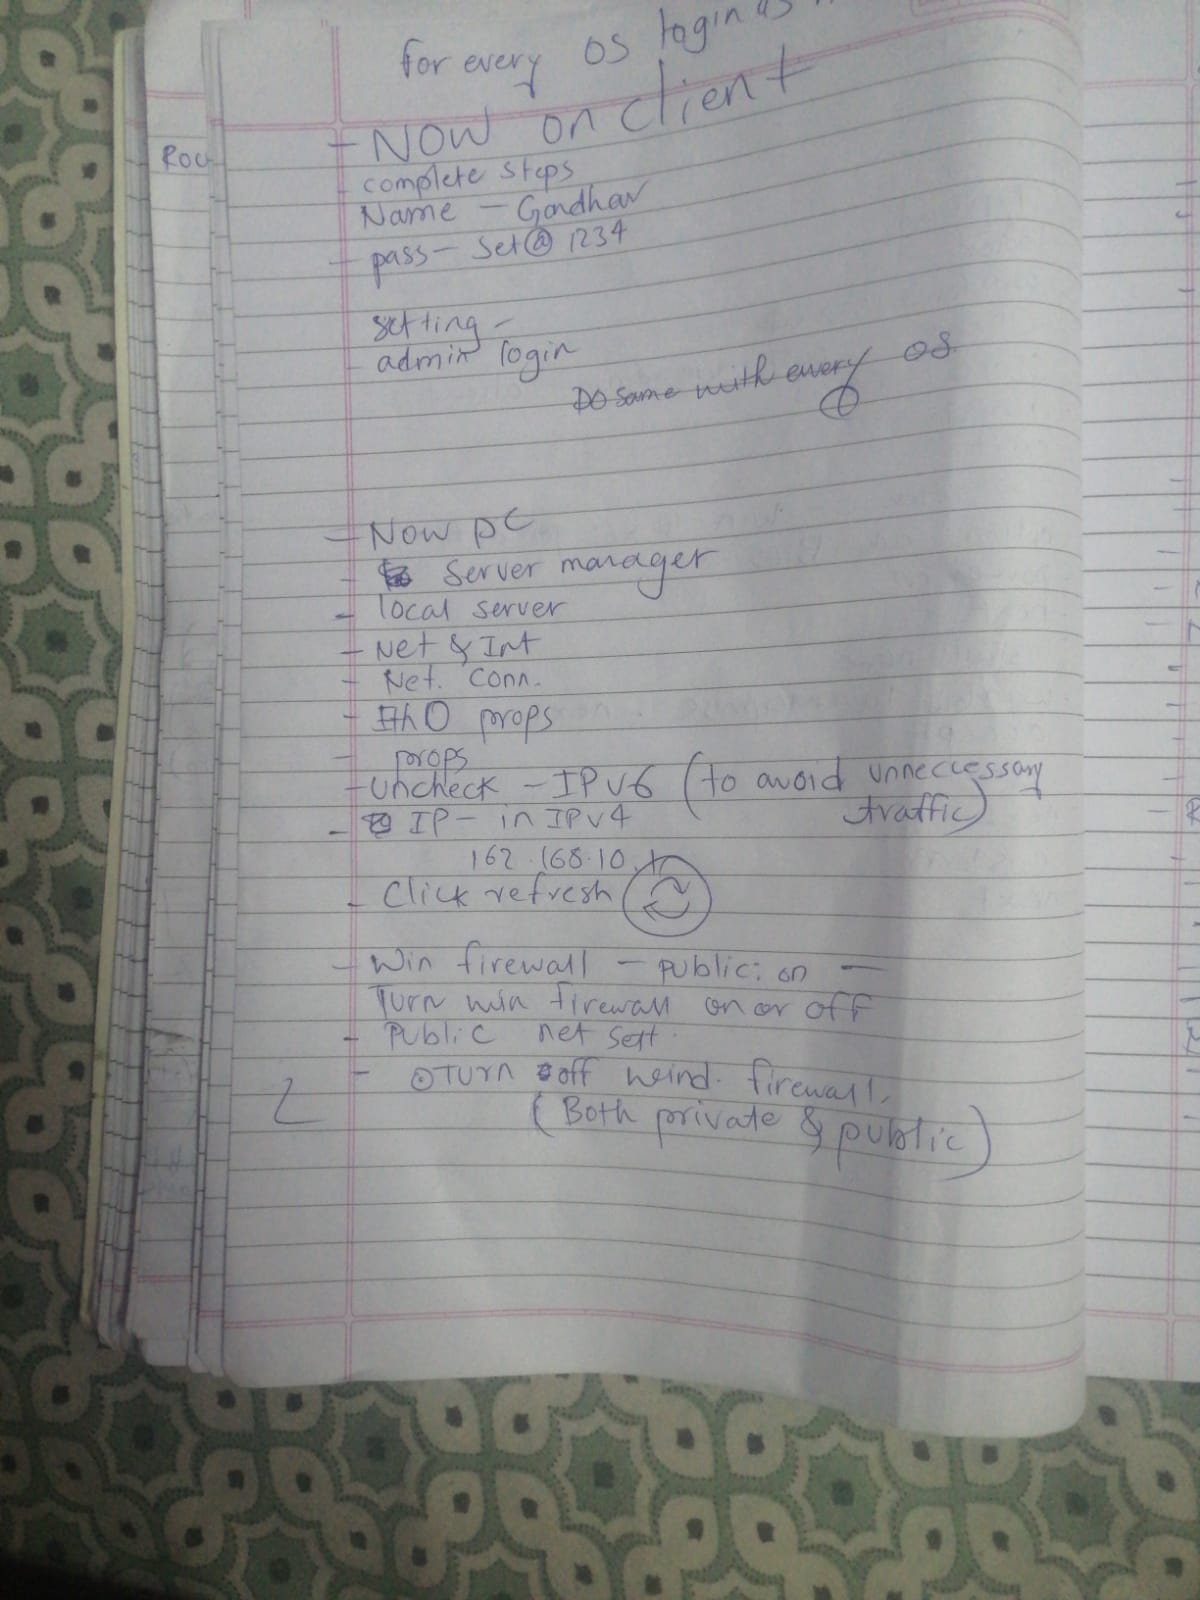 for every OS login as
- NOW on client
- complete steps
Name - Gandhar
- pass - Set@1234
setting -
- admin login
DO same with every OS
- Now DC
- Server manager
- local server
- Net & Int
- Net. Conn.
- Eth0 props
- props
- Uncheck - IPv6 (to avoid unneccessary
traffic)
- IP - in IPv4
162.168.10.1
- Click refresh
- Win firewall - public: on -
Turn win firewall on or off
- Public net sett.
- Turn off wind. firewall.
(Both private & public)
Rou